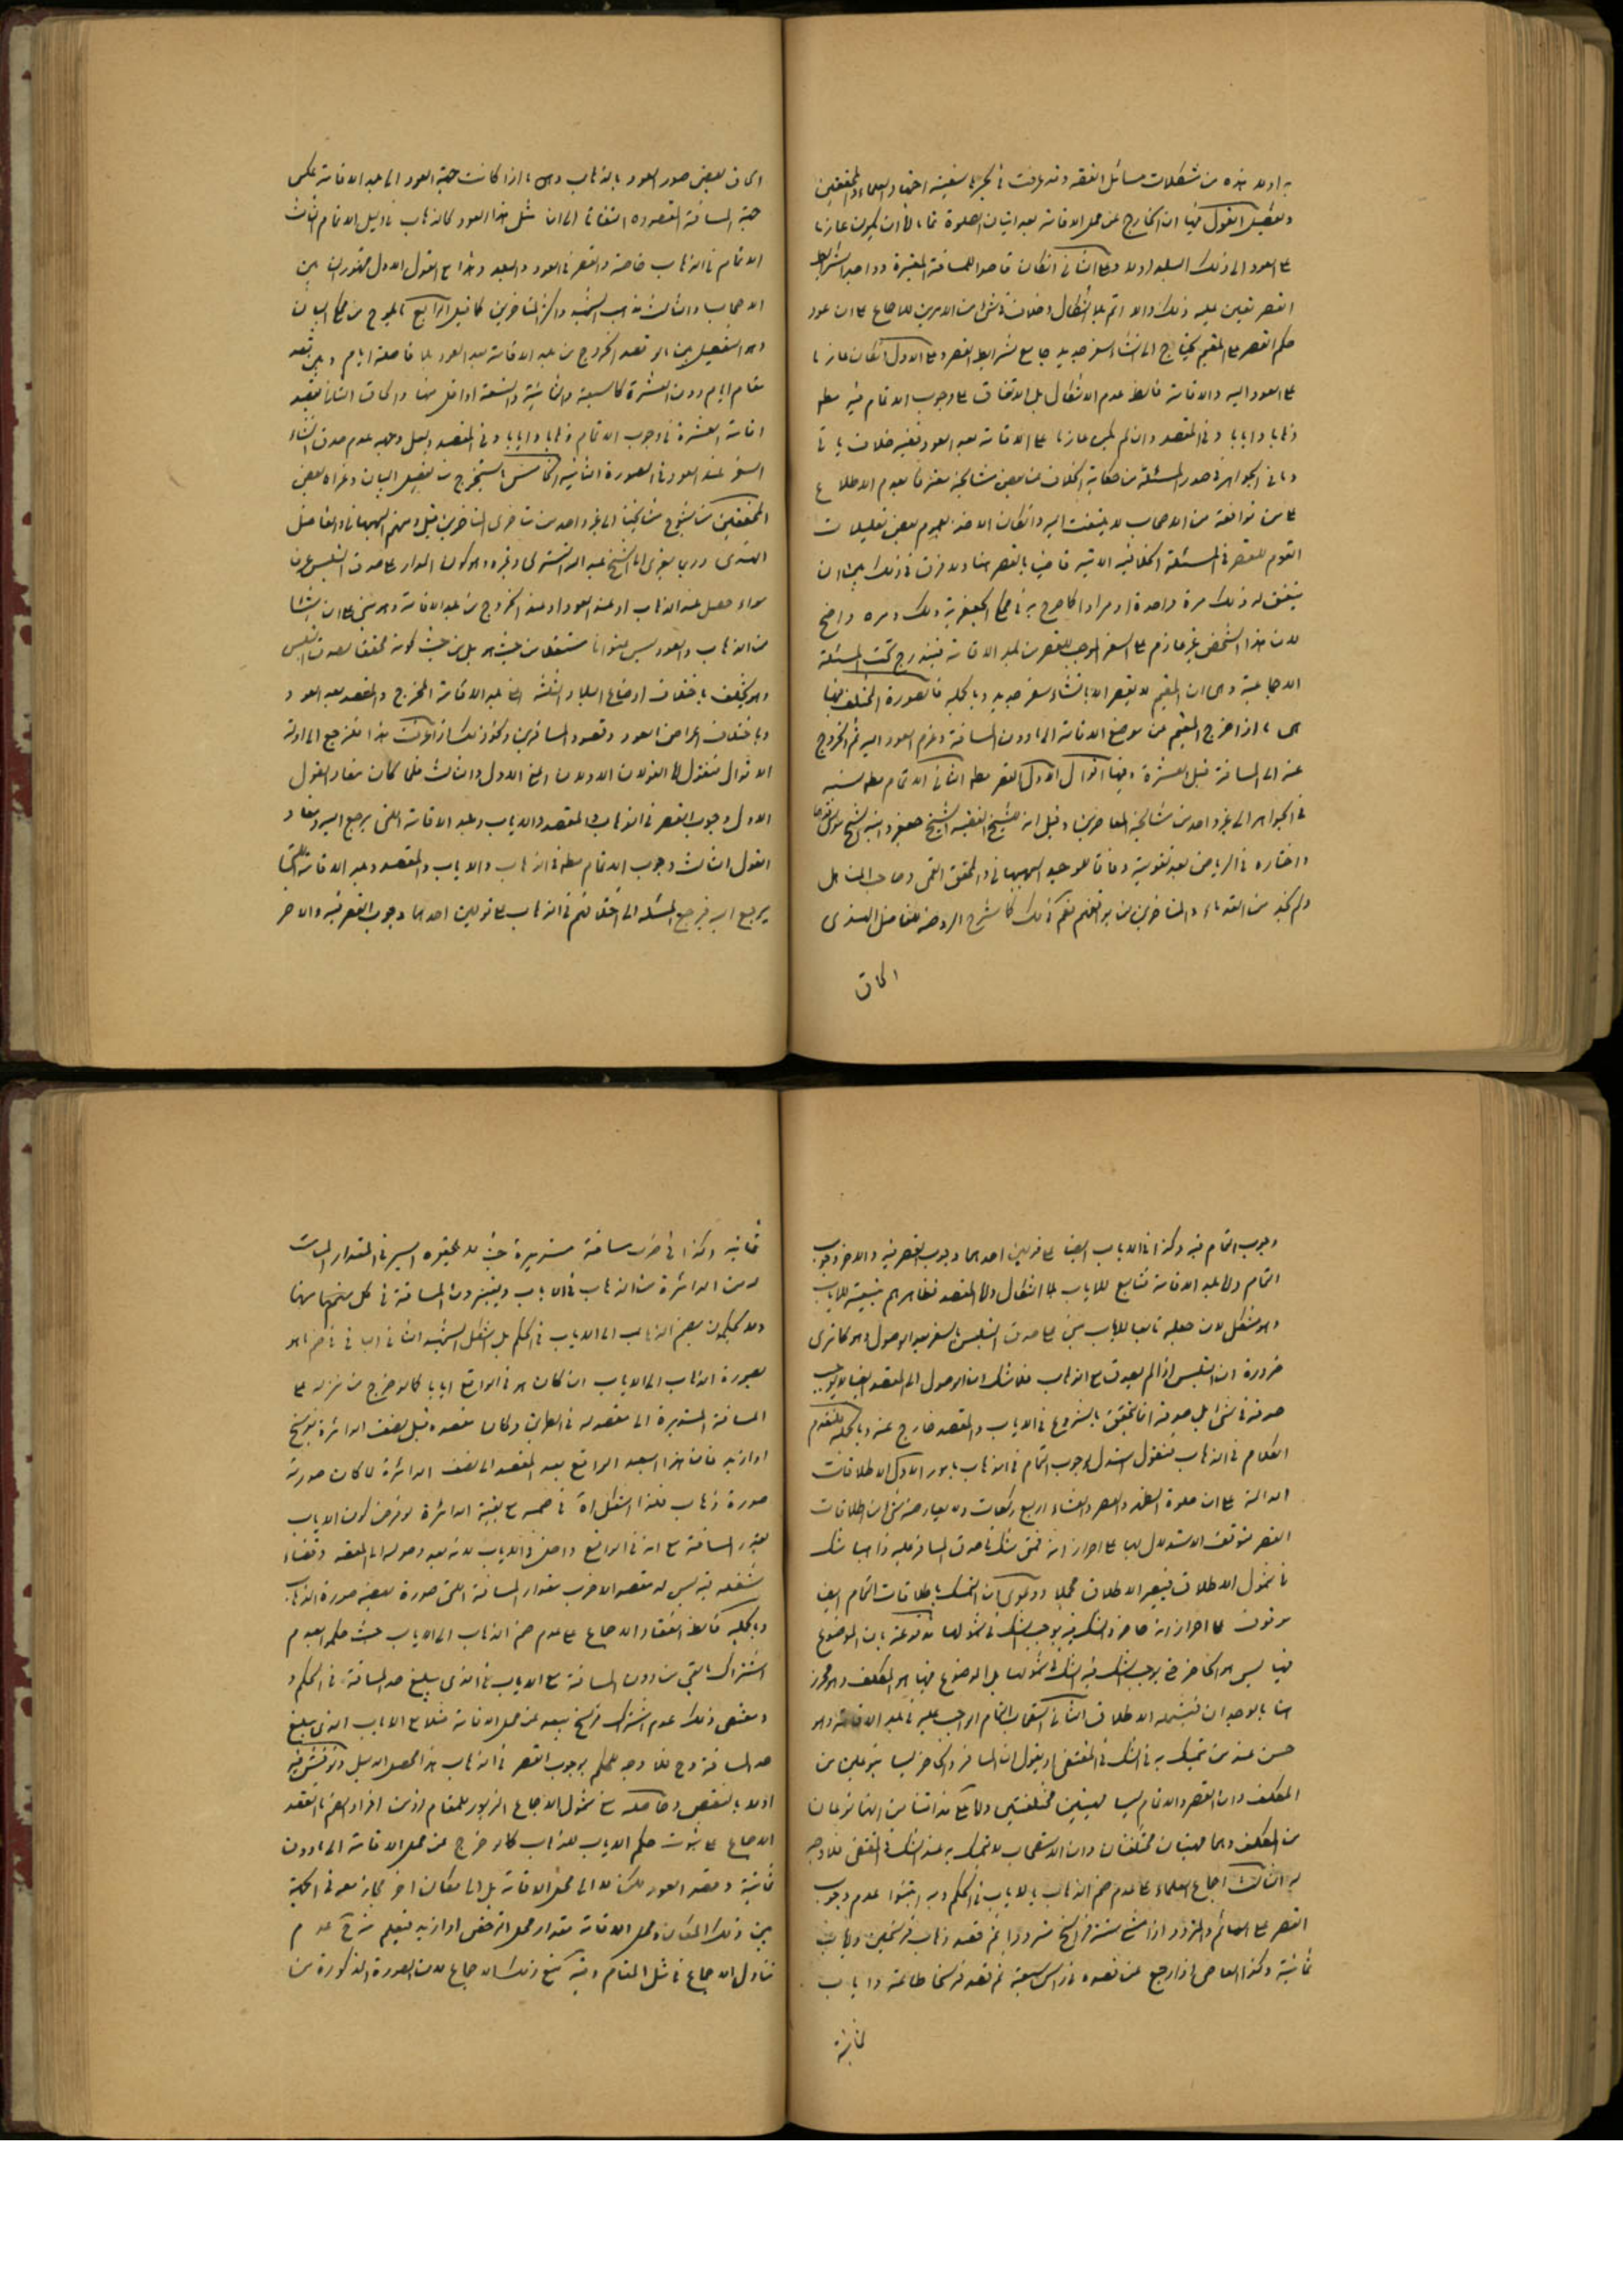 به اولا هذه من مشكلات مسائل الفقه وقد غرقت في بحرها سفينة احتهاد العلماء والمحققين
وتفصيل القول فيها ان الخارج عن محل الاقامة بعد اتيان الصلوة تماما اما ان يكون عازما
على العود الى ذلك البلد اولا وعلى الثاني ان كان قاصدا للمسافة المعتبرة وواجد الشرايط
القصر تعين عليه ذلك والا اتم بلا اشكال وخلاف في شيء من الامرين للاجماع على ان عود
حكم القصر على المقيم يحتاج الى انشاء سفر جديد جامع شرايط القصر وعلى الاول ان كان عازما
على العود اليه والاقامة فالظ عدم الاشكال بل الاتفاق على وجوب الاتمام فيه مطلقا
ذهابا وايابا وفي المقصد وان لم يكن عازما على الاقامة بعد العود ففيه خلاف ياتي
وما في الجواهر في صدر المسئلة من حكاية الخلاف من بعض مشايخه معترفا بعدم الاطلاع
على من توافقه من الاصحاب لا يلتفت اليه وان كان الاخذ بعموم بعض تعليلات
القوم للقصر في المسئلة الخلافية الاتية قاضيا بالقصر هنا ولا فرق في ذلك بين ان
يتفق له ذلك مرة واحدة او مرارا كما صرح به في محكي الجعفرية وذلك وجهه واضح
لان هذا الشخص غير عازم على السفر الموجب للقصر من بلد الاقامة فيندرج تحت المسئلة
الاجماعية وهي ان المقيم لا يقصر الا بانشاء سفر جديد وبالجملة فالصورة المختلف فيها
هي ما اذا خرج المقيم من موضع الاقامة الى ما دون المسافة وعزم العود اليه ثم الخروج
عنه الى المسافة قبل العشرة وفيها اقوال الاول القصر مطلقا الثاني الاتمام مطلقا نسبه
في الجواهر الى غير واحد من مشايخه المعاصرين وقيل انه للشيخ الفقيه الشيخ جعفر وابنه الشيخ موسى
واختاره في الرياض بعد تقويته وفاقا للوحيد البهبهاني والمحقق القمي وصاحب المناهل
ولم نجد من القدماء والمتاخرين من يوافقهم نعم في ذلك كاشرح الروضة للفاضل الهندي
الحاق
الحاق بعض صور العود بالذهاب وهي ما اذا كانت جهة العود الى بلد الاقامة عكس
جهة المسافة المقصودة التفاتا الى ان مثل هذا العود كالذهاب بدليل الاتمام الثالث
الاتمام في الذهاب خاصة والقصر في العود والبلد وهذا مع القول الاول مشهوران بين
الاصحاب والثالث مذهب الشهيد واكثر المتاخرين كما قيل الرابع ما يلوح من محكي البيان
وهو التفصيل بين ما لو قصد الخروج من بلد الاقامة بعد العود بلا فاصلة ايام وبين قصد
مقام ايام دون العشرة كالسبعة والثمانية والتسعة او اقل منها والحاق الثاني بقصد
اقامة العشرة في وجوب الاتمام ذهابا وايابا وفي المقصد ولعل وجهه عدم صدق انشاء
السفر عند العود في الصورة الثانية الخامس ما يستخرج من تفصيل البيان وعزاه بعض
المحققين من شيوخ مشايخنا الى غير واحد من متاخري المتاخرين قيل ومنهم البهبهاني والفاضل
الهندي وربما يعزى الى الشيخ عبد الله التستري وغيره وهو كون المدار على صدق التلبس عرفا
سواء حصل عند الذهاب او عند العود او عند الخروج من بلد الاقامة وهو مبني على ان شيئا
من الذهاب والعود ليس عنوانا مستقلا من حيث هو بل من حيث كونه محققا لصدق التلبس
وهو يختلف باختلاف اوضاع البلاد الثلثة اعني بلد الاقامة المخرج والمقصد بعد العود و
وباختلاف اغراض العود وقصود المسافرين ونحو ذلك اذا عرفت هذا فلنرجع الى ادلة
الاقوال فنقول اما القولان الاولان اعني الاول والثالث فلما كان مفاد القول
الاول وجوب القصر في الذهاب والمقصد والاياب وبلد الاقامة اللتي يرجع اليه ومفاد
القول الثالث وجوب الاتمام مطلقا في الذهاب والاياب والمقصد وبلد الاقامة اللتي
يرجع اليه فيرجع المسئلة الى اختلافهم في الذهاب على قولين احدهما وجوب القصر فيه والاخر
وجوب التمام فيه وكذا في الاياب ايضا على قولين احدهما وجوب القصر فيه والاخر وجوب
التمام واما بلد الاقامة فتابع للاياب بلا اشكال واما المقصد فظاهرهم تبعيته للاياب
وهو مشكل لان جعله تابعا للاياب مبني على صدق التلبس بالسفر بعد الوصول وهو كما ترى
ضرورة ان التلبس اذا لم يصدق مع الذهاب فلا شك ان الوصول الى المقصد ايضا لا يوجب
صدقه في شيء بل صدقه انما يتحقق بالشروع في الاياب والمقصد خارج عنه وبالجملة فلنقدم
الكلام في الذهاب فنقول استدل لوجوب التمام في الذهاب بامور الاول الاطلاقات
الدالة على ان صلوة الظهر والعصر والعشاء اربع ركعات ولا يعارضه شيء من اطلاقات
القصر لتوقف الاستدلال بها على احراز انه فمن شك في صدق المسافر عليه ذاهبا شك
في شمول الاطلاق فيصير الاطلاق مجملا ودعوى ان التمسك باطلاقات التمام ايضا
موقوف على احراز انه حاضر والشك فيه يوجب الشك في شمولها مدفوعة بان الموضوع
فيها ليس هو الحاضر حتى يوجب الشك فيه الشك في شمولها بل الموضوع فيها هو المكلف وهو محرز
هنا بالوجدان فيشمله الاطلاق الثاني استصحاب التمام الواجب عليه في بلد الاقامة وهو
حسن عند من تمسك به في الشك في المقتضي او يقول ان المسافر والحاضر ليسا بنوعين من
المكلف وان القصر والاتمام ليسا مهيتين مختلفتين واما على مذاقنا من انهما نوعان
من المكلف وهما مهيتان مختلفتان وان الاستصحاب لا يتمسك به عند الشك في المقتضي فلا وجه
له الثالث اجماع العلماء على عدم ضم الذهاب بالاياب في الحكم وبه اثبتوا عدم وجوب
القصر على الهائم والمتردد اذا مشى ستة فراسخ مترددا ثم قصد ذهاب فرسخين واياب
ثمانية وكذا العاصي اذا رجع عن قصده في راس سبعة ثم قصد فرسخا طاعة واياب
ثمانية
ثمانية وكذا في مسافة مستديرة حيث يعتبره السير في المقدار
له من الدائرة من الذهاب في الاياب ويعتبرون المسافة في كل منهما منها
ولا يحكمون بضم الذهاب الى الاياب في الحكم بل استشكل الشهيد الثاني في ضم ما هو
بصورة الذهاب الى الاياب ان كان هو في الواقع ايابا كما لو خرج من منزله على
المسافة المستديرة الى مقصد له في الطريق وكان مقصده قبل نصف الدائرة بفرسخ
او ازيد فان هذا البعد الواقع بعد المقصد الى نصف الدائرة لما كان صورته
صورة ذهاب فلذا استشكل في ضمه مع بقية الدائرة لو فرض كون الاياب
بقدر المسافة مع انه في الواقع داخل في الاياب لانه بعد وصوله الى المقصد وقضاء
شغله فيه ليس له مقصد الاخر بمقدار المسافة اللتي صورة بعضه صورة الذهاب
وبالجملة فالظ انعقاد الاجماع على عدم ضم الذهاب الى الاياب حيث حكموا بعدم
اشتراك ما بقي من دون المسافة مع الاياب الذي يبلغ حد المسافة في الحكم و
ومقتضى ذلك عدم اشتراك فرسخ بعد عن محل الاقامة مثلا مع الاياب الذي يبلغ
حد المسافة وح فلا وجه للحكم بوجوب القصر في الذهاب هذا محصل الدليل ونوقش فيه
اولا بالنقض وحاصله منع شمول الاجماع المزبور للمقام اذ من افراد الضم ما انعقد
الاجماع على ثبوت حكم الاياب للذهاب كما لو خرج عن محل الاقامة الى ما دون
ثمانية وقصد العود لكن لا الى محل الاقامة بل الى مكان اخر مجاز معه في الجهة
بين ذلك المكان ومحل الاقامة مقدار محل الترخص او ازيد فيعلم من ح عدم
تناول الاجماع في مثل المقام وفيه منع ذلك الاجماع لان الصورة المذكورة من